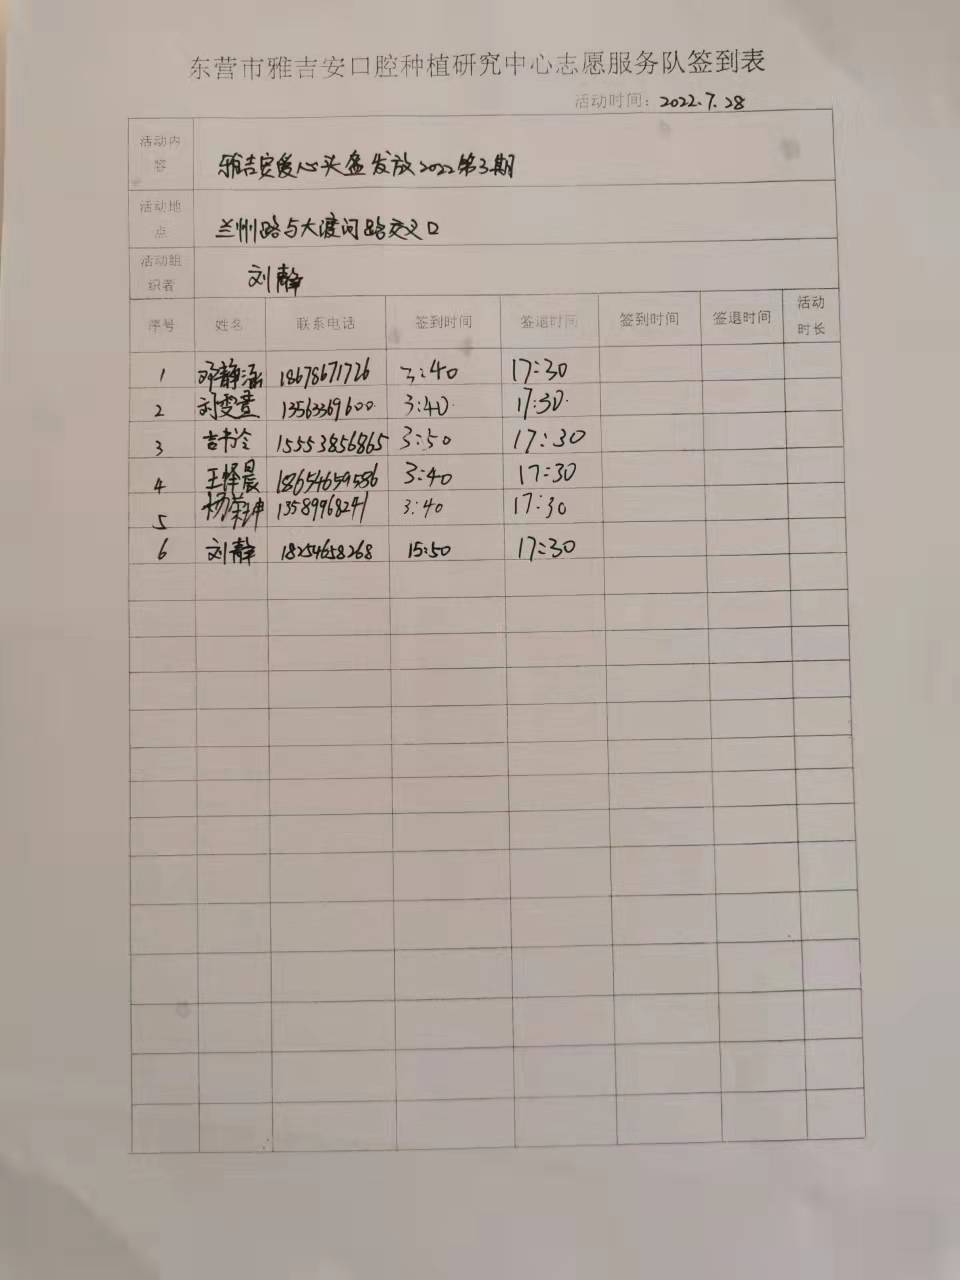 东营市雅吉安口腔种植研究中心志愿服务队签到表
活动时间：2022.7.28
活动内容 雅吉安爱心头盔发放2022第3期
活动地点 兰州路与大渡河路交叉口
活动组织者 刘静
序号 姓名 联系电话 签到时间 签退时间 签到时间 签退时间 活动时长
1 邓静涵 18678671726 3:40 17:30
2 13563369600 3:40 17:30
3 15553856865 3:50 17:30
4 王怿晨 18654659586 3:40 17:30
5 13589968241 3:40 17:30
6 刘静 18254658268 15:50 17:30